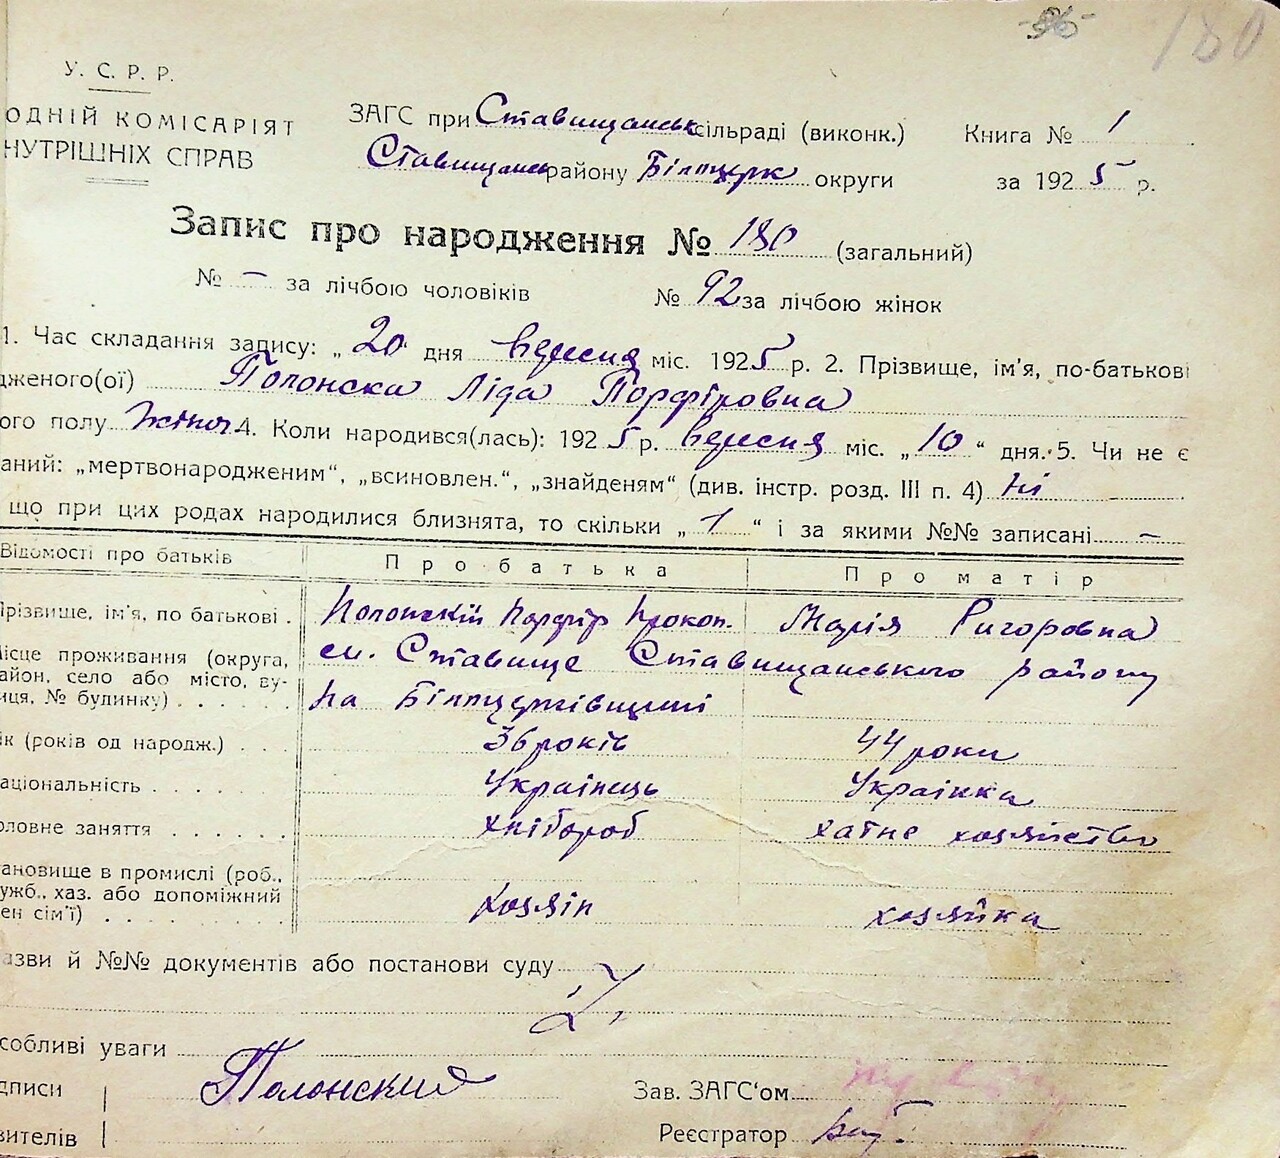 180
У. С. Р. Р.
ОДНІЙ КОМІСАРІЯТ
НУТРІШНІХ СПРАВ
ЗАГС при Ставищанськ сільраді (виконк.)
Ставищансь району Білоцерк округи
Книга № 1
за 1925 р.
Запис про народження № 180 (загальний)
№ – за лічбою чоловіків № 92 за лічбою жінок
1. Час складання запису: „20“ дня вересня міс. 1925 р. 2. Прізвище, ім'я, по-батькові
дженого(ої) Полонска Ліда Порфіровна
ого полу жіноч 4. Коли народився(лась): 1925 р. вересня міс. „10“ дня. 5. Чи не є
аний: „мертвонародженим“, „всиновлен.“, „знайденям“ (див. інстр. розд. III п. 4) ні
що при цих родах народилися близнята, то скільки „1“ і за якими №№ записані –
Відомості про батьків Про батька Про матір
Прізвище, ім'я, по батькові . Полонскій Порфір Прокоп. Марія Ригоровна
Місце проживання (округа, см. Ставище Ставищанського району
район, село або місто, ву-
лиця, № будинку) . . . . . . На Білоцерківщині
ік (років од народж.) . . . 36 років 44 роки
аціональність . . . . . . Українець Українка
оловне заняття . . . . . . хлібороб хатне хозяйство
тановище в промислі (роб.,
ужб., хаз. або допоміжний
ен сім'ї) . . . . . . . . хозяін хозяйка
азви й №№ документів або постанови суду
собливі уваги
дписи Полонский Зав. ЗАГС'ом
вителів Реєстратор